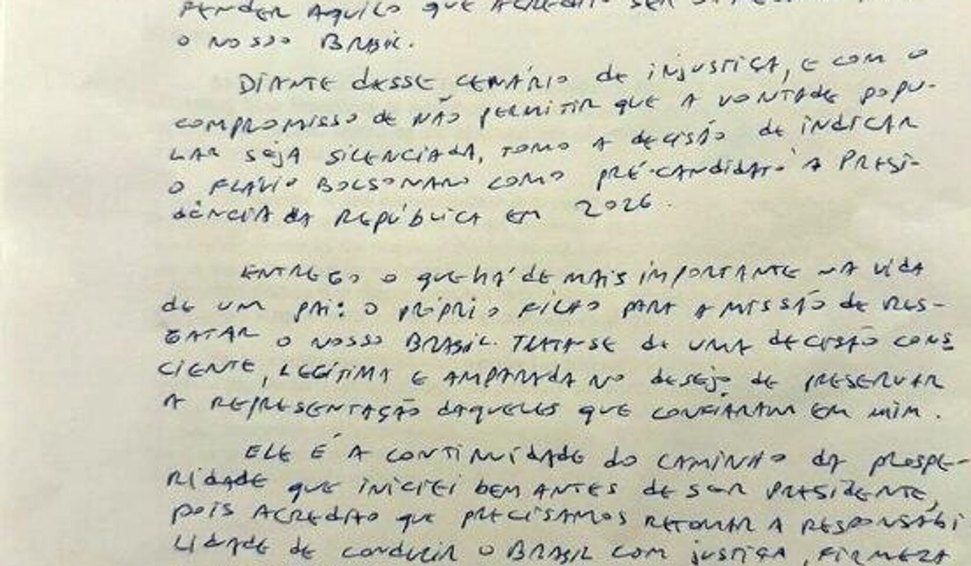 PENDER AQUILO QUE ACREDITO SER
O NOSSO BRASIL.
DIANTE DESSE CENÁRIO DE INJUSTIÇA, E COM O
COMPROMISSO DE NÃO PERMITIR QUE A VONTADE POPU-
LAR SEJA SILENCIADA, TOMO A DECISÃO DE INDICAR
O FLÁVIO BOLSONARO COMO PRÉ-CANDIDATO À PRESI-
DÊNCIA DA REPÚBLICA EM 2026.
ENTREGO O QUE HÁ DE MAIS IMPORTANTE NA VIDA
DE UM PAI: O PRÓPRIO FILHO PARA A MISSÃO DE RES-
GATAR O NOSSO BRASIL. TRATA-SE DE UMA DECISÃO CONS
CIENTE, LEGÍTIMA E AMPARADA NO DESEJO DE PRESERVAR
A REPRESENTAÇÃO DAQUELES QUE CONFIARAM EM MIM.
ELE É A CONTINUIDADE DO CAMINHO DA PROSPE-
RIDADE QUE INICIEI BEM ANTES DE SER PRESIDENTE,
POIS ACREDITO QUE PRECISAMOS RETOMAR A RESPONSABI
LIDADE DE CONDUZIR O BRASIL COM JUSTIÇA, FIRMEZA